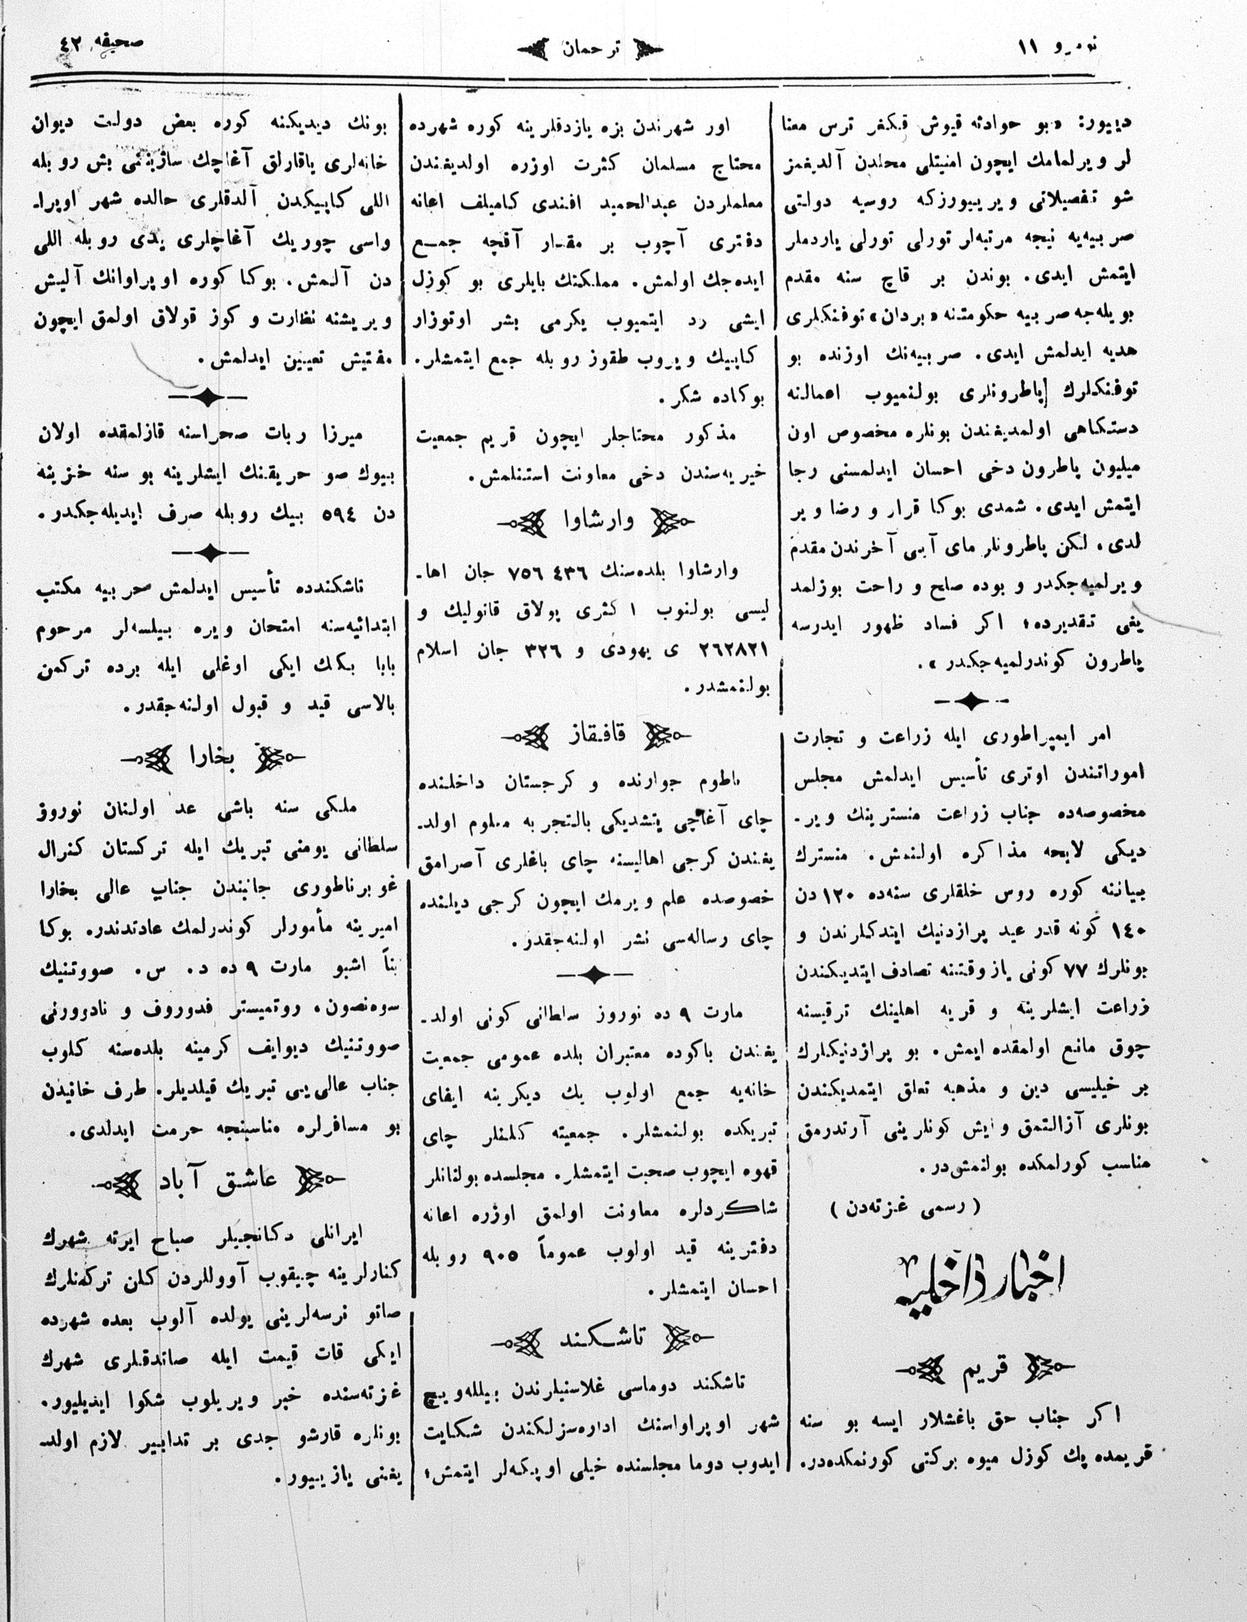 نومرو ١١
ترجمان
صحیفه ٤٢
دییور: «بو حوادثه قپوش قیکفر ترس معنا
لر ویرلمامك ایچون امنیتلی محلدن آلدیغمز
شو تفصیلاتی ویرییورزكه روسیه دولتی
صربیه‌یه نیجه مرتبه‌لر تورلی تورلی یاردملر
ایتمش ایدی. بوندن بر قاچ سنه مقدم
بویله‌جه صربیه حكومتنه «بردان» توفنكلری
هدیه ایدلمش ایدی. صربیه‌نك اوزنده بو
توفنكلرك پاطرونلری بولنمیوب اعمالنه
دستكاهی اولمدیغندن بونلره مخصوص اون
میلیون پاطرون دخی احسان ایدلمسنی رجا
ایتمش ایدی. شمدی بوكا قرار و رضا ویر
لدی. لكن پاطرونلر مای آیی آخرندن مقدم
ویرلمیه‌جكدر و بوده صلح و راحت بوزلمد
یغی تقدیرده؛ اكر فساد ظهور ایدرسه
پاطرون كوندرلمیه‌جكدر».
امر ایمپراطوری ایله زراعت و تجارت
اموراتندن اوتری تأسیس ایدلمش مجلس
مخصوصه‌ده جناب زراعت منسترینك ویر-
دیكی لایحه مذاكره اولنمش. منسترك
بیاننه كوره روس خلقلری سنه‌ده ١٢٠ دن
١٤٠ كونه قدر عید پرازدنیك ایتدكلرندن و
بونلرك ٧٧ كونی یاز وقتنه تصادف ایتدیكندن
زراعت ایشلرینه و قریه اهلینك ترقیسنه
چوق مانع اولمقده ایمش. بو پرازدنیكلرك
بر خیلیسی دین و مذهبه تعلق ایتمدیكندن
بونلری آزالتمق و ایش كونلرینی آرتدرمق
مناسب كورلمكده بولنمش‌در.
(رسمی غزته‌دن)
اخبار داخلیه
قریم
اكر جناب حق باغشلار ایسه بو سنه
قریمده پك كوزل میوه بركتی كورنمكده‌در.
اور شهرندن بزه یازدقلرینه كوره شهرده
محتاج مسلمان كثرت اوزره اولدیغندن
معلملردن عبدالحمید افندی كامیلف اعانه
دفتری آچوب بر مقدار آقچه جمع
ایده‌جك اولمش. مملكتك بایلری بو كوزل
ایشی رد ایتمیوب یكرمی بشر اوتوزار
كاپیك ویروب طقوز روبله جمع ایتمشلر.
بوكاده شكر.
مذكور محتاجلر ایچون قریم جمعیت
خیریه‌سندن دخی معاونت استنلمش.
وارشاوا
وارشاوا بلده‌سنك ٤٣٦ ٧٥٦ جان اها-
لیسی بولنوب اكثری پولاق قاتولیك و
٢٦٢٨٢١ ی یهودی و ٣٢٦ جان اسلام
بولنمشدر.
قافقاز
باطوم جوارنده و كرجستان داخلنده
چای آغاچی یتشدیكی بالتجربه معلوم اولد-
یغندن كرجی اهالیسنه چای باغلری آصرامق
خصوصده علم ویرمك ایچون كرجی دیلنده
چای رساله‌سی نشر اولنه‌جقدر.
مارت ٩ ده نوروز سلطانی كونی اولد-
یغندن باكوده معتبران بلده عمومی جمعیت
خانه‌یه جمع اولوب یك دیكرینه ایفای
تبریكده بولنمشلر. جمعیته كلنلر چای
قهوه ایچوب صحبت ایتمشلر. مجلسده بولنانلر
شاكردلره معاونت اولمق اوزره اعانه
دفترینه قید اولوب عموماً ٩٠٥ روبله
احسان ایتمشلر.
تاشكند
تاشكند دوماسی غلاسنیلرندن بیلله‌ویچ
شهر اوپراواسنك اداره‌سزلكندن شكایت
ایدوب دوما مجلسنده خیلی اوپكه‌لر ایتمش؛
بونك دیدیكنه كوره بعض دولت دیوان
خانه‌لری یاقارلق آغاچك ساژینمی بش روبله
اللی كاپیكدن آلدقلری حالده شهر اوپرا-
واسی چوریك آغاچلری یدی روبله اللی
دن آلمش. بوكا كوره اوپراوانك آلیش
ویریشنه نظارت و كوز قولاق اولمق ایچون
مفتیش تعیین ایدلمش.
میرزا ربات صحراسنه قازلمقده اولان
بیوك صو حریقنك ایشلرینه بو سنه خزینه
دن ٥٩٤ بیك روبله صرف ایدیله‌جكدر.
تاشكندده تأسیس ایدلمش حربیه مكتب
ابتدائیه‌سنه امتحان ویره بیلسه‌لر مرحوم
بابا بكك ایكی اوغلی ایله برده تركمن
بالاسی قید و قبول اولنه‌جقدر.
بخارا
ملكی سنه باشی عد اولنان نوروز
سلطانی یومنی تبریك ایله تركستان كنرال
غوبرناطوری جانبندن جناب عالی بخارا
امیرینه مأمورلر كوندرلمك عادتدندر. بوكا
بناً اشبو مارت ٩ ده د. س. صووتنیك
سوه‌نصون، روتمیستر فدوروف و نادوورنی
صووتنیك دیوایف كرمینه بلده‌سنه كلوب
جناب عالی‌یی تبریك قیلدیلر. طرف خانیدن
بو مسافرلره مناسبنجه حرمت ایدلدی.
عاشق آباد
ایرانلی دكانجیلر صباح ایرته شهرك
كنارلرینه چیقوب آووللردن كلن تركمنلرك
صاتو نرسه‌لرینی یولده آلوب بعده شهرده
ایكی قات قیمت ایله صاتدقلری شهرك
غزته‌سنده خبر ویریلوب شكوا ایدیلیور.
بونلره قارشو جدی بر تدابیر لازم اولد
یغنی یازییور.